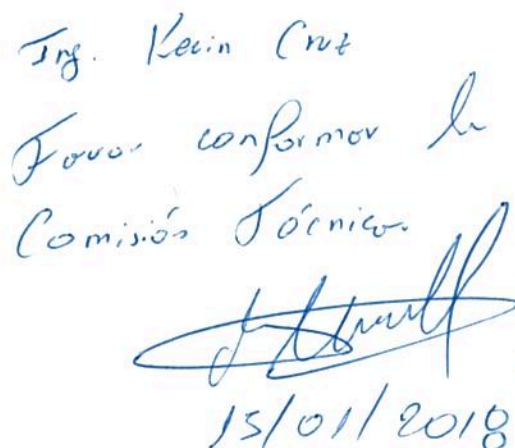 Ing. Kevin Cruz
Favor conformar la
Comisión Técnica.
15/01/2018